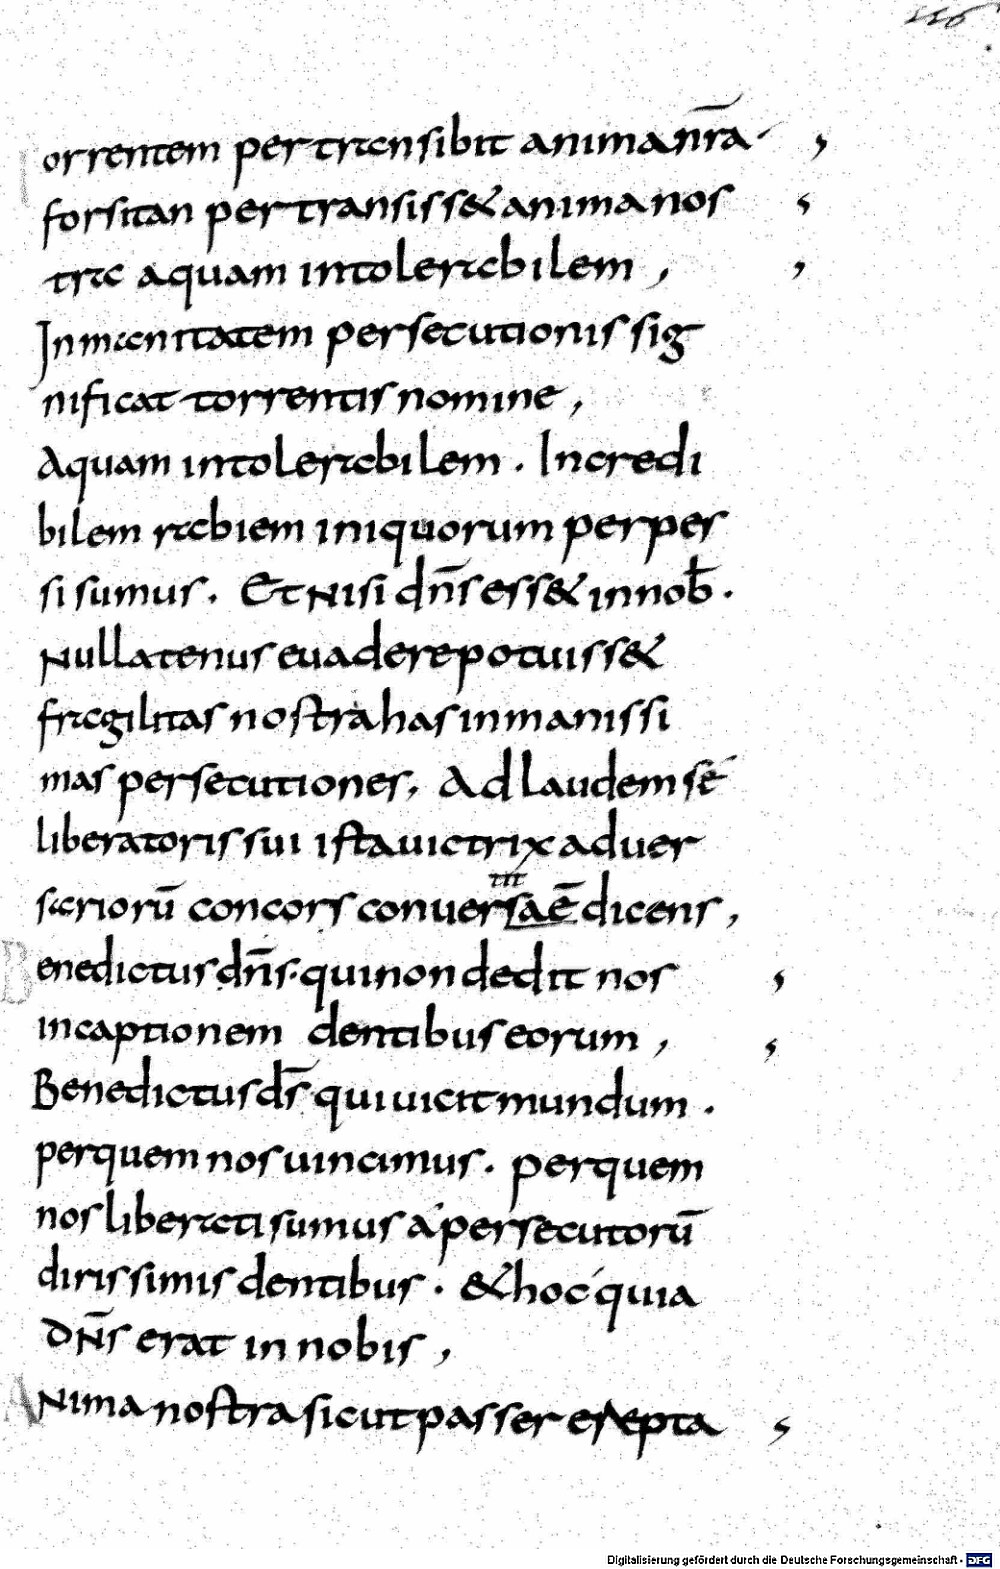 116
orrentem pertransibit anima nr̄a ·
forsitan pertransiss& anima nos
tra aquam intolerabilem ,
Inmanitatem persecutionis sig
nificat torrentis nomine ,
Aquam intolerabilem . Incredi
bilem rabiem iniquorum perpes
si sumus . Et Nisi dn̄s ess& in nob̄ .
Nullatenus euadere potuiss&
fragilitas nostra has inmanissi
mas persecutiones , Ad laudem sé
liberatoris sui ista uictrix aduer
sariorū concors conuersaē dicens ,
tit
Benedictus dn̄s · qui non dedit nos
in captionem dentibus eorum ,
Benedictus ds̄ qui uicit mundum .
per quem nos uincimus . per quem
nos liberati sumus á persecutorū
dirissimis dentibus . & hoc quia
DN̄s erat in nobis ,
ANima nostra sicut passer erepta
Digitalisierung gefördert durch die Deutsche Forschungsgemeinschaft - DFG